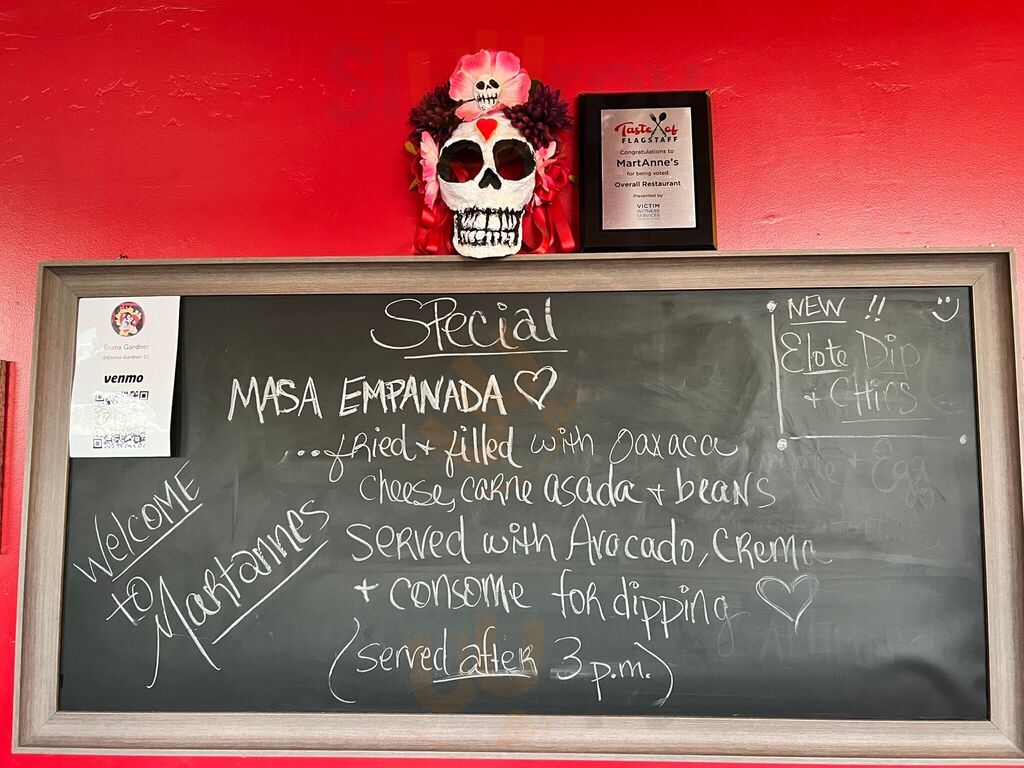 Taste of
FLAGSTAFF
Congratulations to
MartAnne's
for being voted
Overall Restaurant
Presented by
VICTIM
WITNESS
SERVICES
Emma Gardner
@Emma-Gardner-23
venmo
Special
MASA EMPANADA ♡
...fried + filled with Oaxaca
cheese, carne asada + beans
served with Avocado, Crema
+ consome for dipping ♡
(served after 3 p.m.)
Welcome
to
MartAnnes
NEW !!
Elote Dip
+ Chips